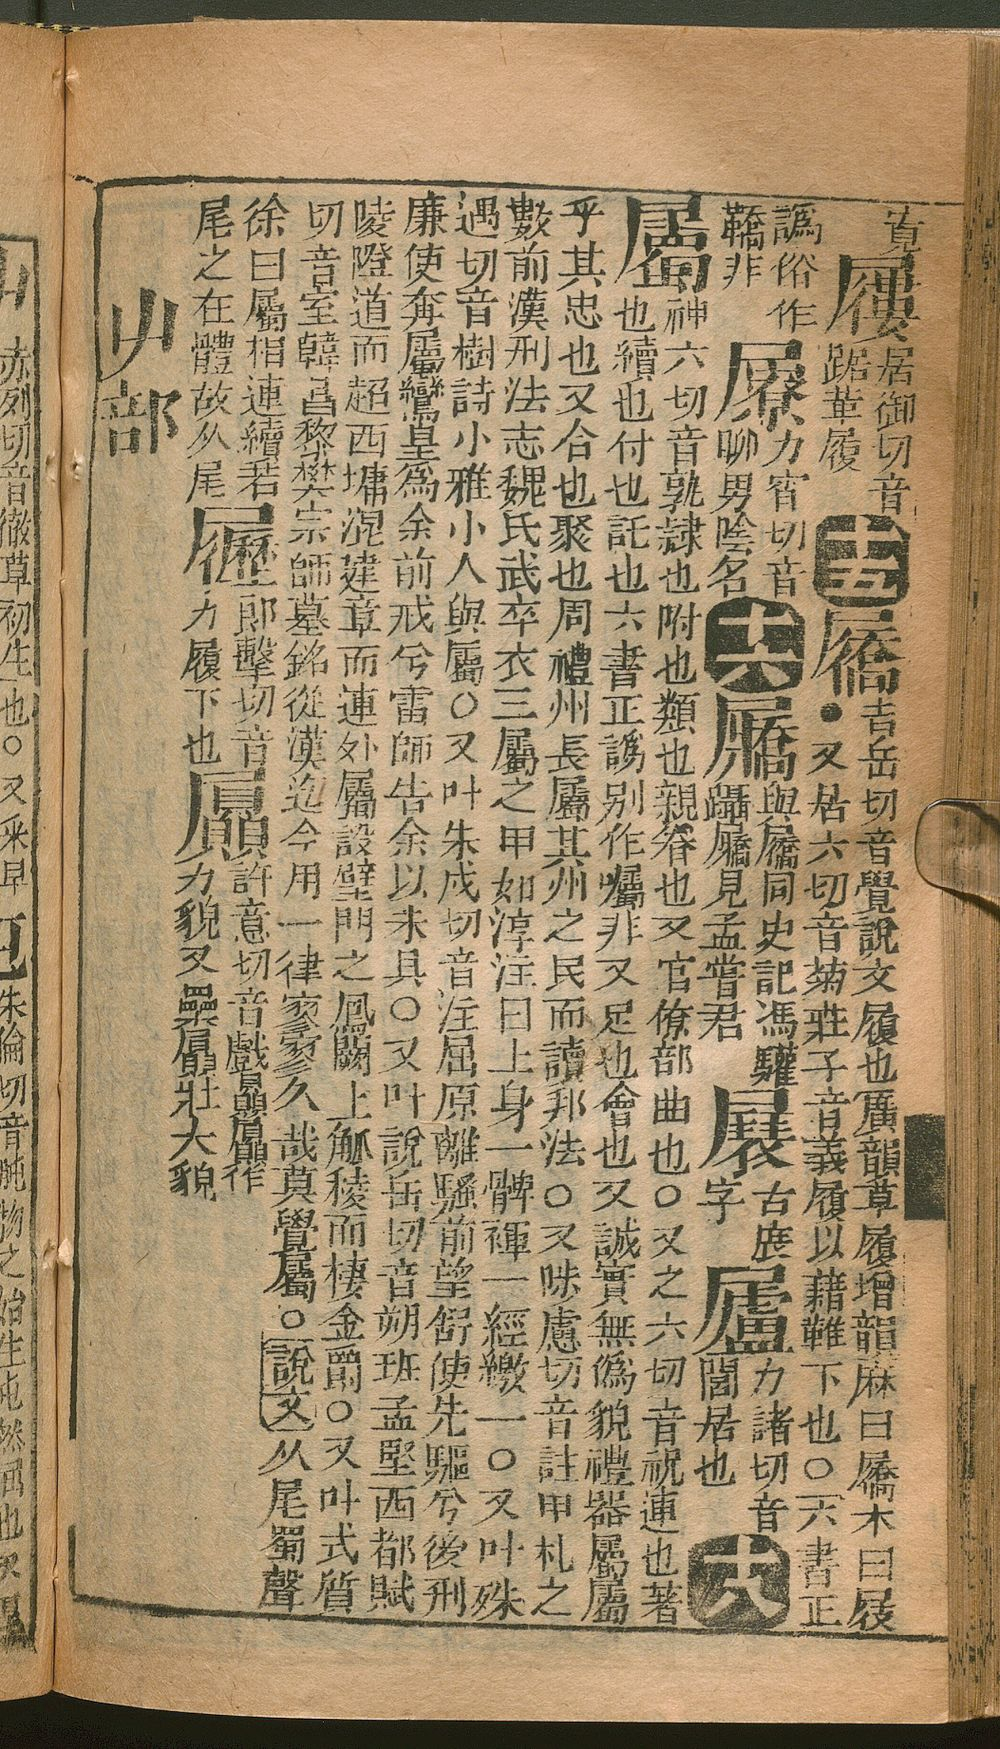 寘
屨居御切音
踞葦履
十五
屩吉岳切音覺說文履也廣韻草履增韻麻曰屩木曰屐
又居六切音菊莊子音義履以藉鞋下也○六書正
譌俗作
鞽非
屪力宵切音
聊男陰名
十六
屫與屩同史記馮驩
躡屫見孟嘗君
古庶
字
廬力諸切音
閭居也
十八
屬神六切音孰隸也附也類也親眷也又官僚部曲也○又之六切音祝連也著
也續也付也託也六書正譌別作囑非又足也會也又誠實無僞貌禮器屬屬
乎其忠也又合也聚也周禮州長屬其州之民而讀邦法○又味慮切音註甲札之
數前漢刑法志魏氏武卒衣三屬之甲如淳注曰上身一髀褌一經繳一○又叶殊
遇切音樹詩小雅小人與屬○又叶朱戍切音注屈原離騷前望舒使先驅兮後刑
廉使奔屬鸞皇爲余前戒兮雷師告余以未具○又叶說岳切音朔班孟堅西都賦
陵隥道而超西墉混建章而連外屬設璧門之鳳闕上觚稜而棲金爵○又叶式質
切音室韓昌黎樊宗師墓銘從漢迄今用一律寥寥久哉莫覺屬○說文从尾蜀聲
徐曰屬相連續若
尾之在體故从尾
郎擊切音
力履下也
屭許意切音戲贔屭作
力貌又奰屭壯大貌
屮部
屮
赤列切音徹草初生也○又采早
屯朱倫切音肫物之始生屯然屈也又